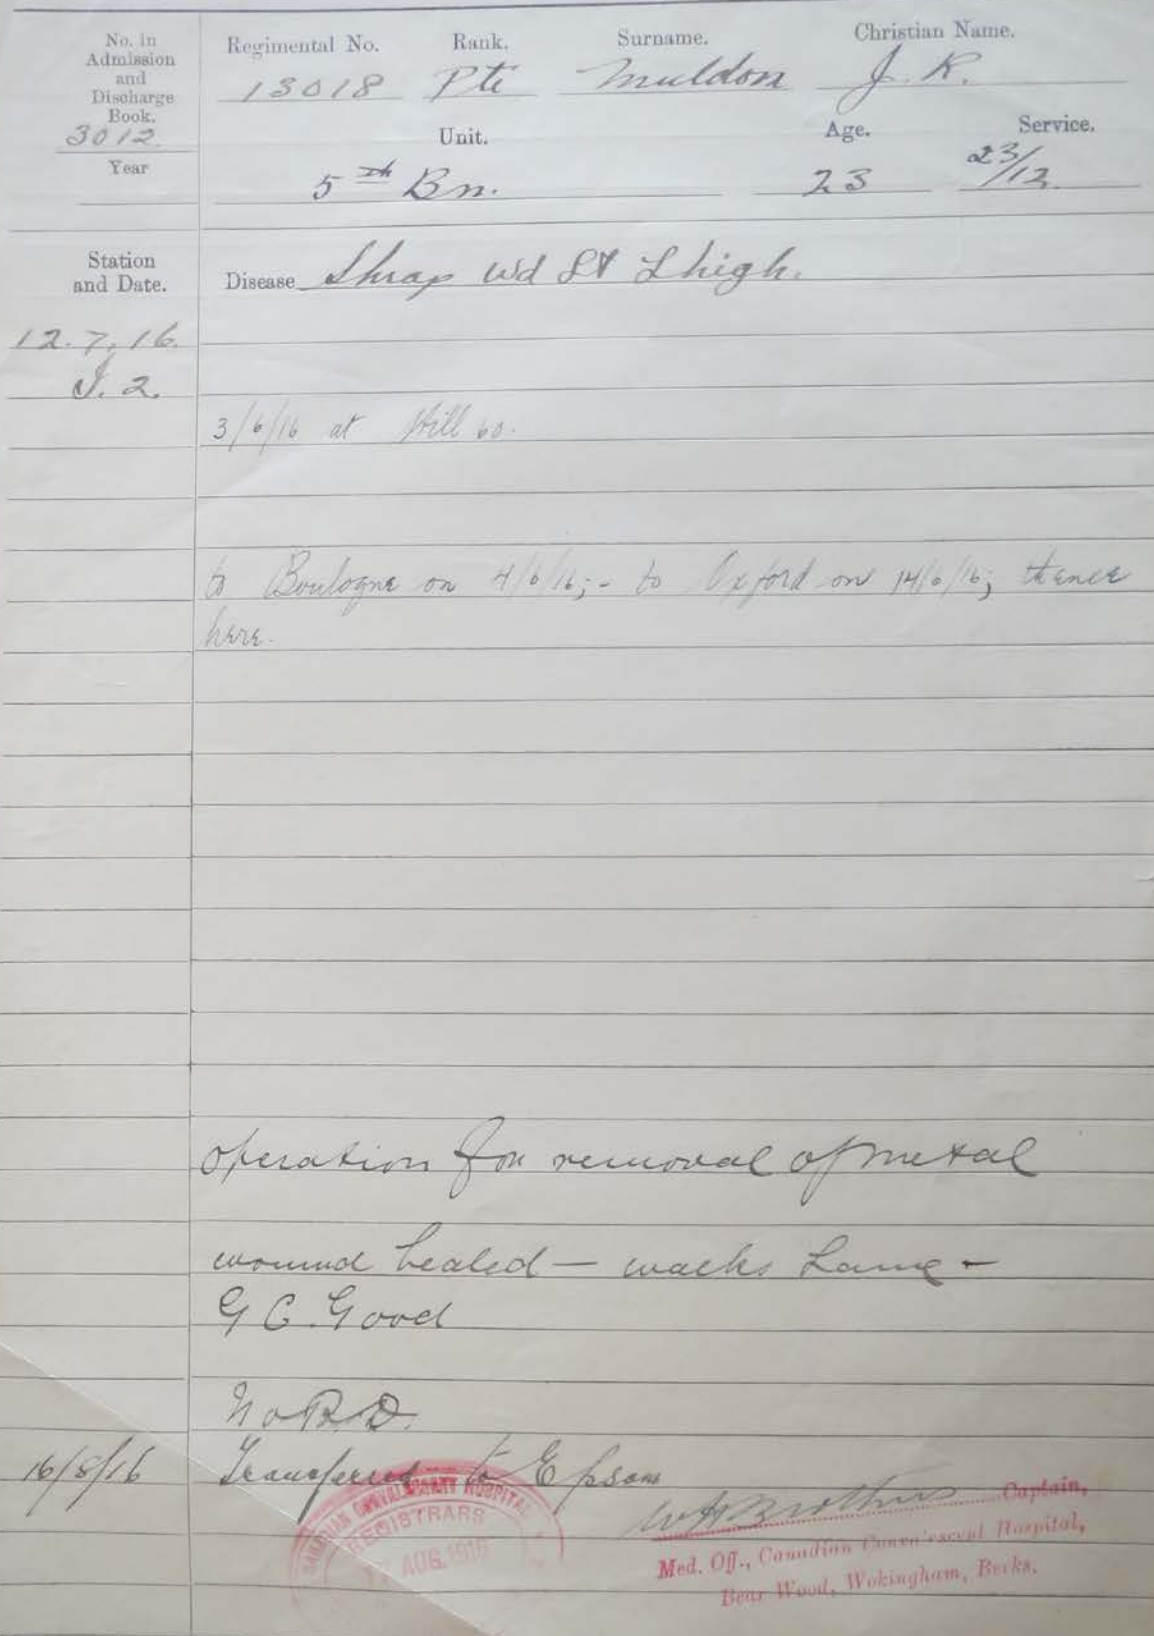 No. in
Admission
and
Discharge
Book.
3012.
Year
Regimental No. Rank. Surname. Christian Name.
13018 Pte Muldon J. R.
Unit. Age. Service.
5th Bn. 23 23/12
Station
and Date.
Disease Shrap Wd Lt Thigh.
12.7.16.
J. 2.
3/6/16 at Hill 60.
to Boulogne on 4/6/16;- to Oxford on 14/6/16; thence
here.
operation for removal of metal
wound healed — walks Lame -
G C. Good
No R. D.
16/8/16 Transferred to Epsom
CANADIAN CONVALESCENT HOSPITAL
REGISTRARS
AUG 1916
Captain,
Med. Off., Canadian Convalescent Hospital,
Bear Wood, Wokingham, Berks.